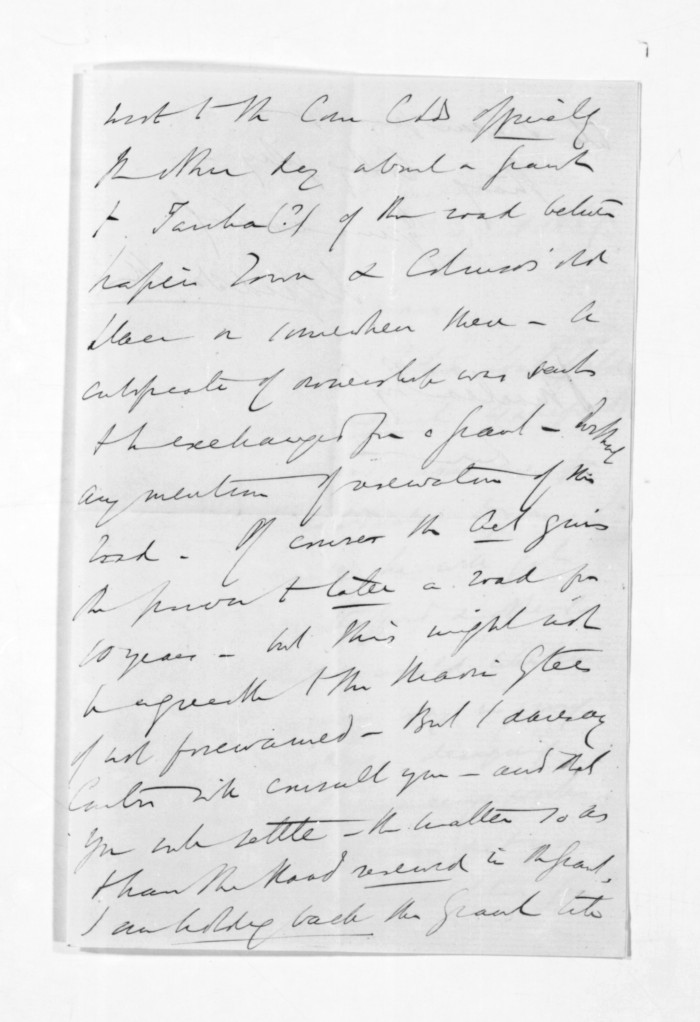 wrote to the Com Clds officially
the other day about a grant
to Tareha(?) of the road between
Napier Town & Colenso's old
place or somewhere there - A
certificate of ownership was sent
to be exchanged for a grant - without
any mention of reservation of this
road - Of course the Act gives
the power to take a road for
10 years - but this might not
be agreeable to the Maori Gtees
if not forewarned - But I daresay
will consult you - and that
you will settle the matter so as
to have the Road reserved in the Grant.
I am holding back the Grant till